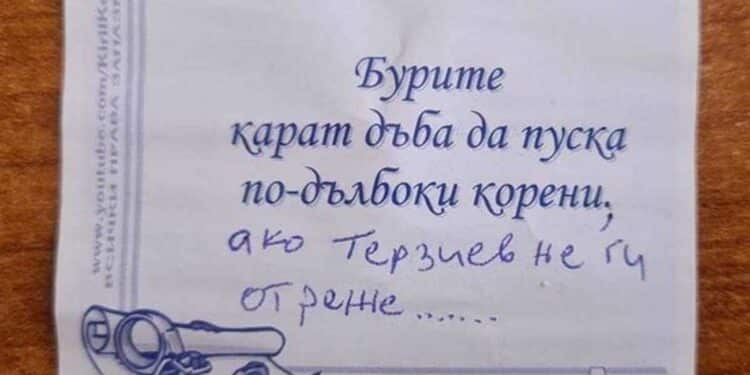 Бурите
карат дъба да пуска
по-дълбоки корени,
ако Терзиев не ги
отреже.......
www.youtube.com/KlikK
ВСИЧКИ ПРАВА ЗАПАЗ